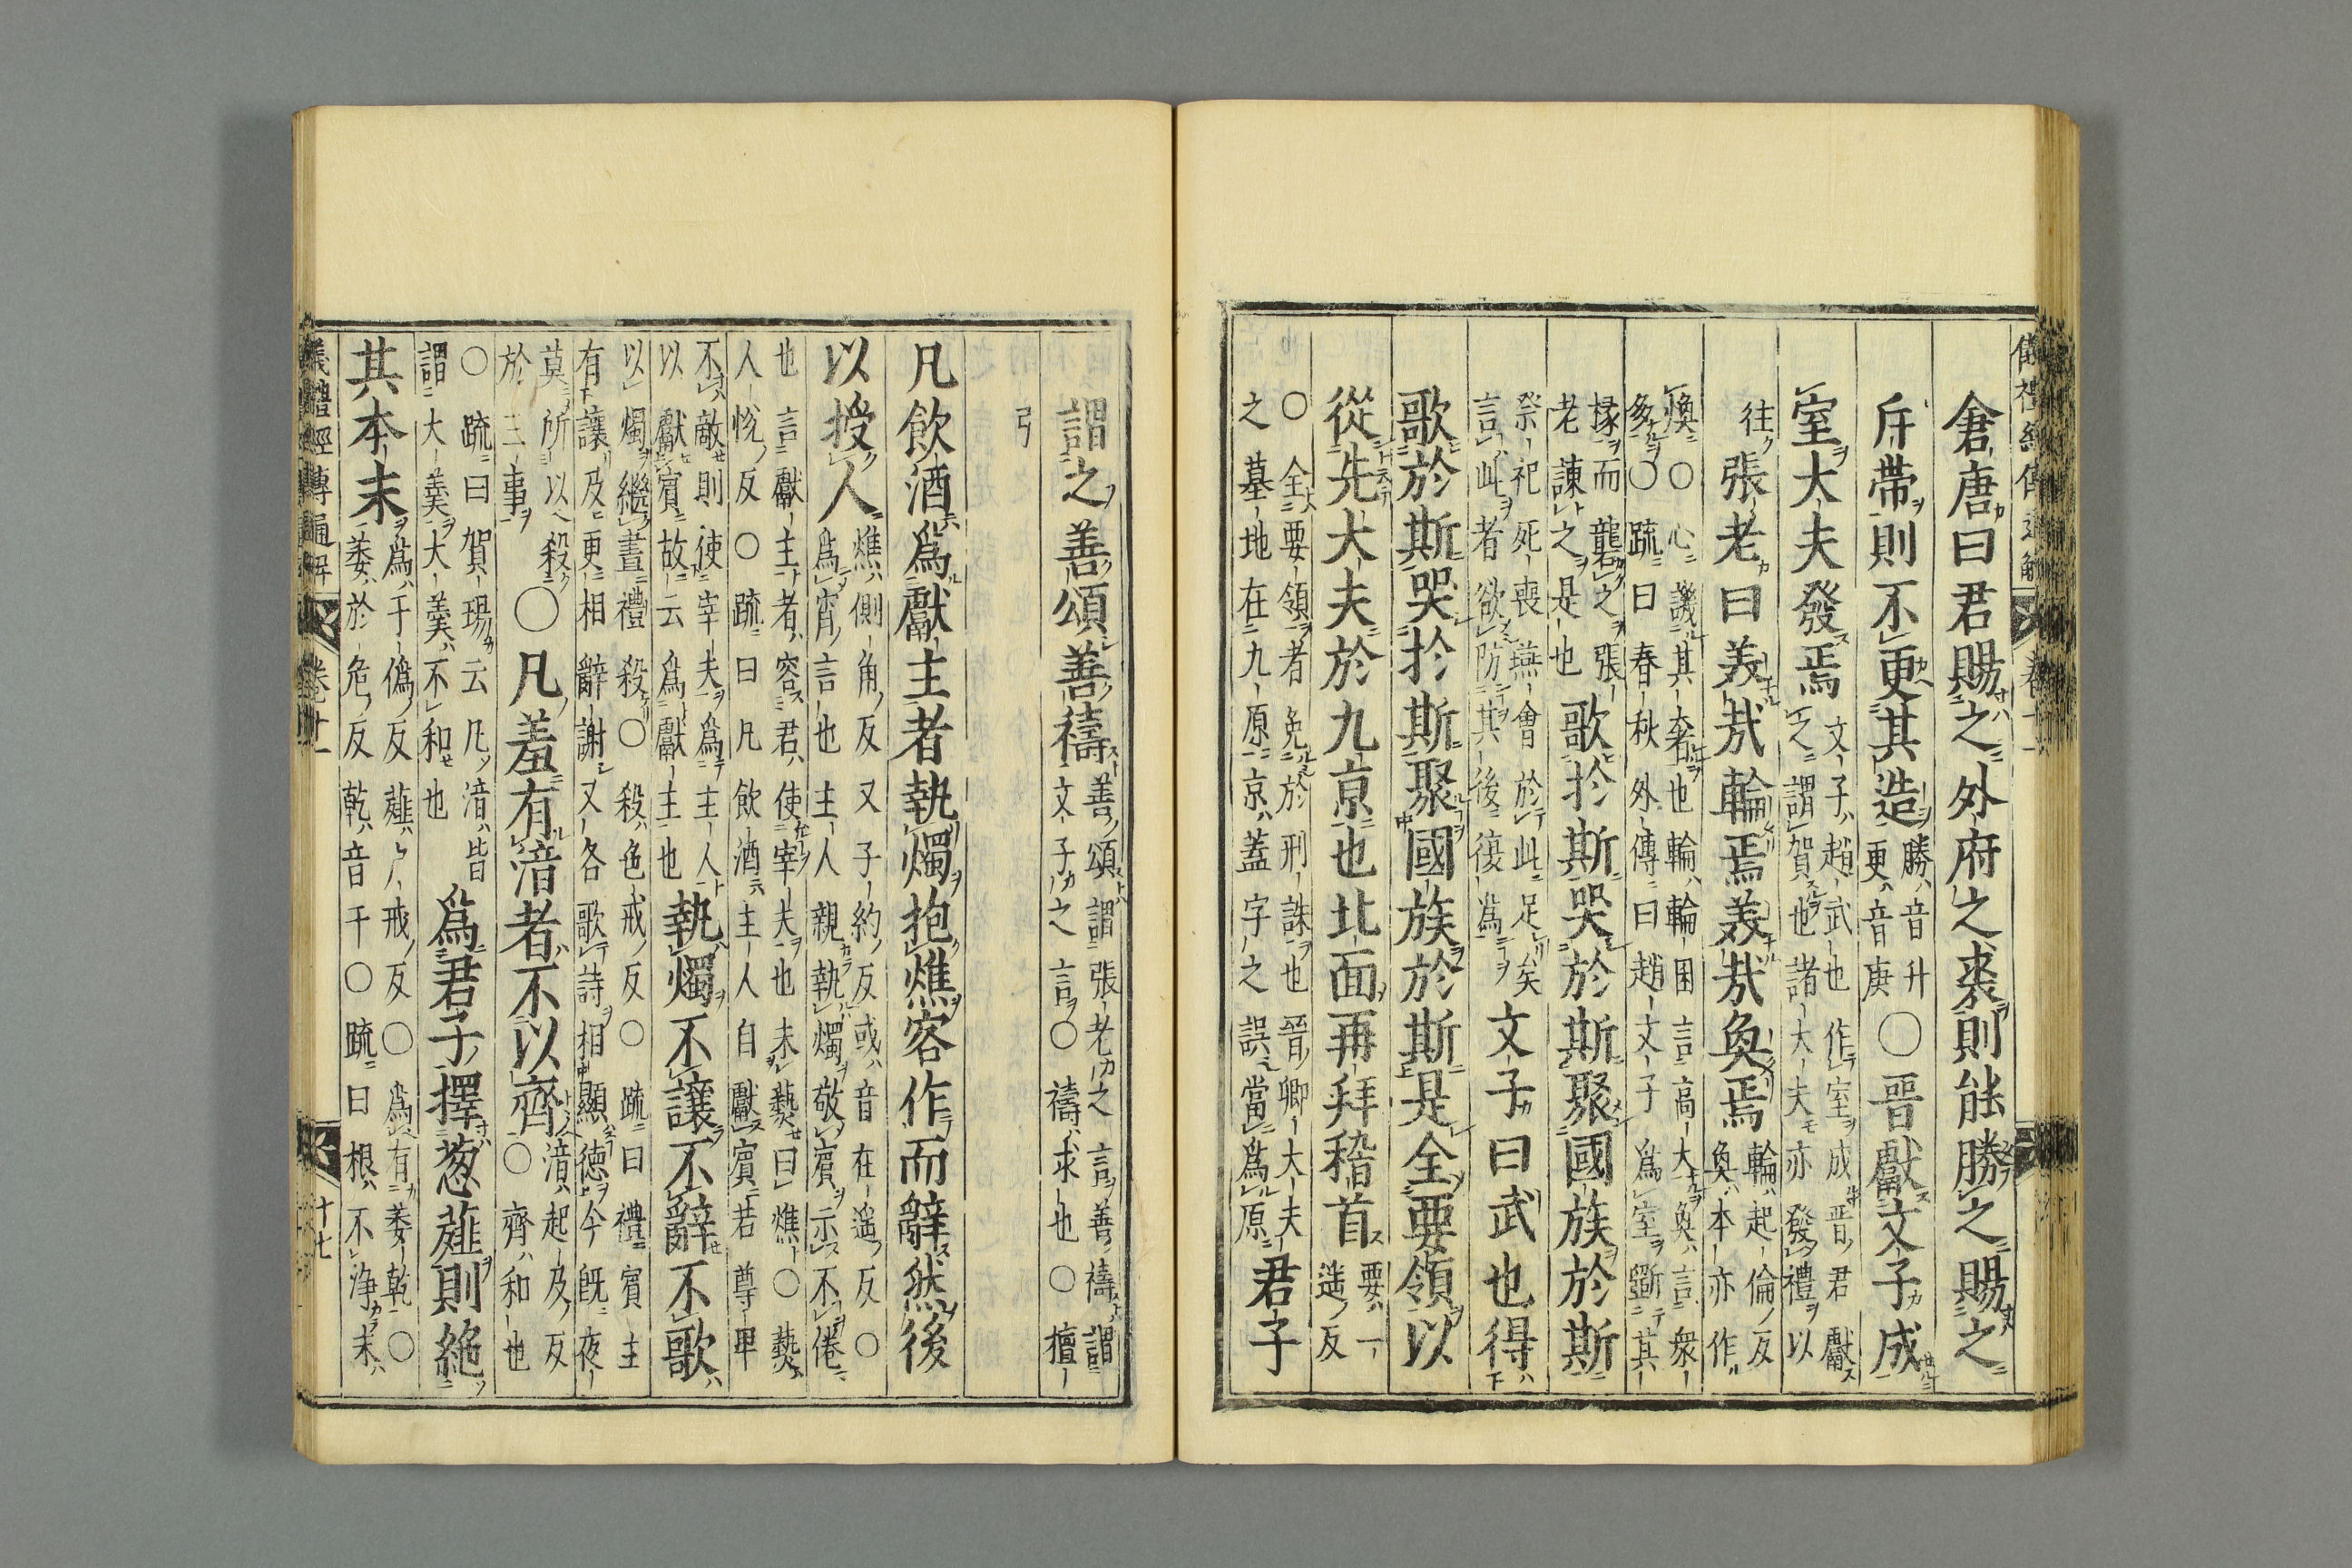 儀禮經傳通解　卷十一
倉唐曰君賜之外府之裘則能勝之賜之
斥帶則不更其造勝音升更音庚○晋獻文子成
室大夫發焉文子趙武也作室成晋君獻之謂賀也諸大夫亦發禮以
往張老曰美哉輪焉美哉奐焉輪起倫反奐本亦作
煥○心譏其奢也輪輪囷言高大奐言衆
多○疏曰春秋外傳曰趙文子為室斲其
椽而礱之張老諫之是也歌於斯哭於斯聚國族於斯
祭祀死喪燕會於此足矣言此者欲防其後復為文子曰武也得
歌於斯哭於斯聚國族於斯是全要領以
從先大夫於九京也北面再拜稽首要一遥反
○全要領者免於刑誅也晉卿大夫之墓地在九原京蓋字之誤當為原君子
謂之善頌善禱善頌謂張老之言善禱謂文子之言○禱求也○檀
弓
凡飲酒為獻主者執燭抱燋客作而辭然後
以授人燋側角反又子約反或音在遥反○為宵言也主人親執燭敬賓示不倦
也言獻主者容君使宰夫也未爇曰燋○爇
人悅反○疏曰凡飲酒主人自獻賓若尊卑
不敵則使宰夫為主人以獻賓故云為獻主也執燭不讓不辭不歌
以燭繼晝禮殺○殺色戒反○疏曰禮賓主
有讓及更相辭謝又各歌詩相顯德今既夜
莫所以殺於三事○凡羞有湆者不以齊湆起及反○齊和也
○疏曰賀瑒云凡湆皆謂大羹大羹不和也為君子擇葱薤則絶
其本末為于偽反薤戶戒反○為有萎乾○萎於危反乾音干○疏曰根不淨末
儀禮經傳通解　卷十一　十七